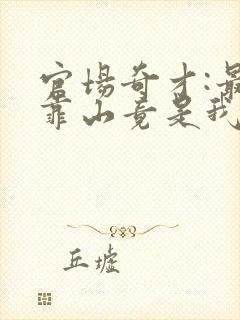 官场奇才:最
靠山竟是我
丘墟